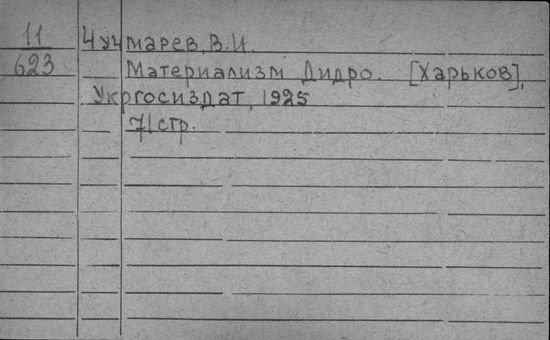 11 Чучмарев, В.И.
623 Материализм Дидро. [Харьков],
Укргосиздат, 1925
71 стр.